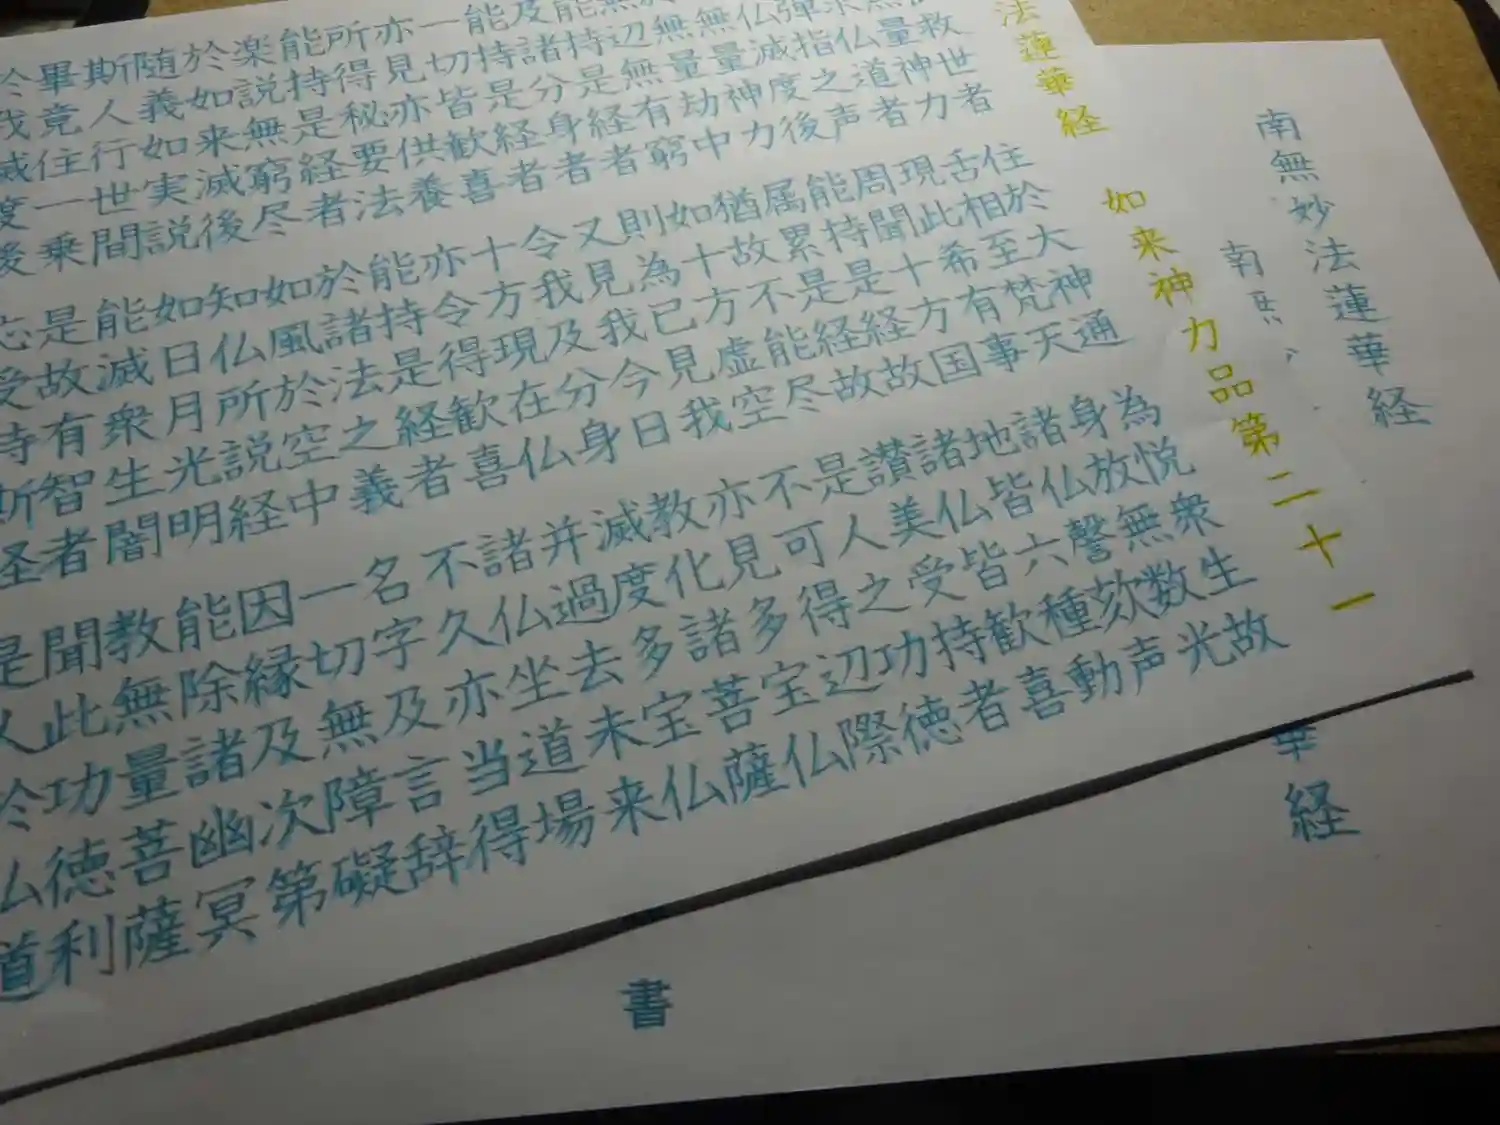 南無妙法蓮華経
南無
華経
書
法蓮華経
如来神力品第二十一
救世者 住於大神通 為悦衆生故
無量神力 舌相至梵天 身放無数光
求仏道者 現此希有事 諸仏謦欬声
弾指之声 周聞十方国 地皆六種動
仏滅度後 能持是経故 諸仏皆歓喜
無量神力 属累是経故 讃美受持者
無量劫中 猶故不能尽 是人之功徳
無辺無有窮 如十方虚空 不可得辺際
能持是経者 則為已見我 亦見多宝仏
及諸分身者 又見我今日 教化諸菩薩
能持是経者 令我及分身 滅度多宝仏
一切皆歓喜 十方現在仏 并過去未来
亦見亦供養 亦令得歓喜 諸仏坐道場
所得秘要法 能持是経者 不久亦当得
能持是経者 於諸法之義 名字及言辞
楽説無窮尽 如風於空中 一切無障礙
於如来滅後 知仏所説経 因縁及次第
随義如実説 如日月光明 能除諸幽冥
斯人行世間 能滅衆生闇 教無量菩薩
畢竟住一乗 是故有智者 聞此功徳利
於我滅度後 応受持斯経 是人於仏道